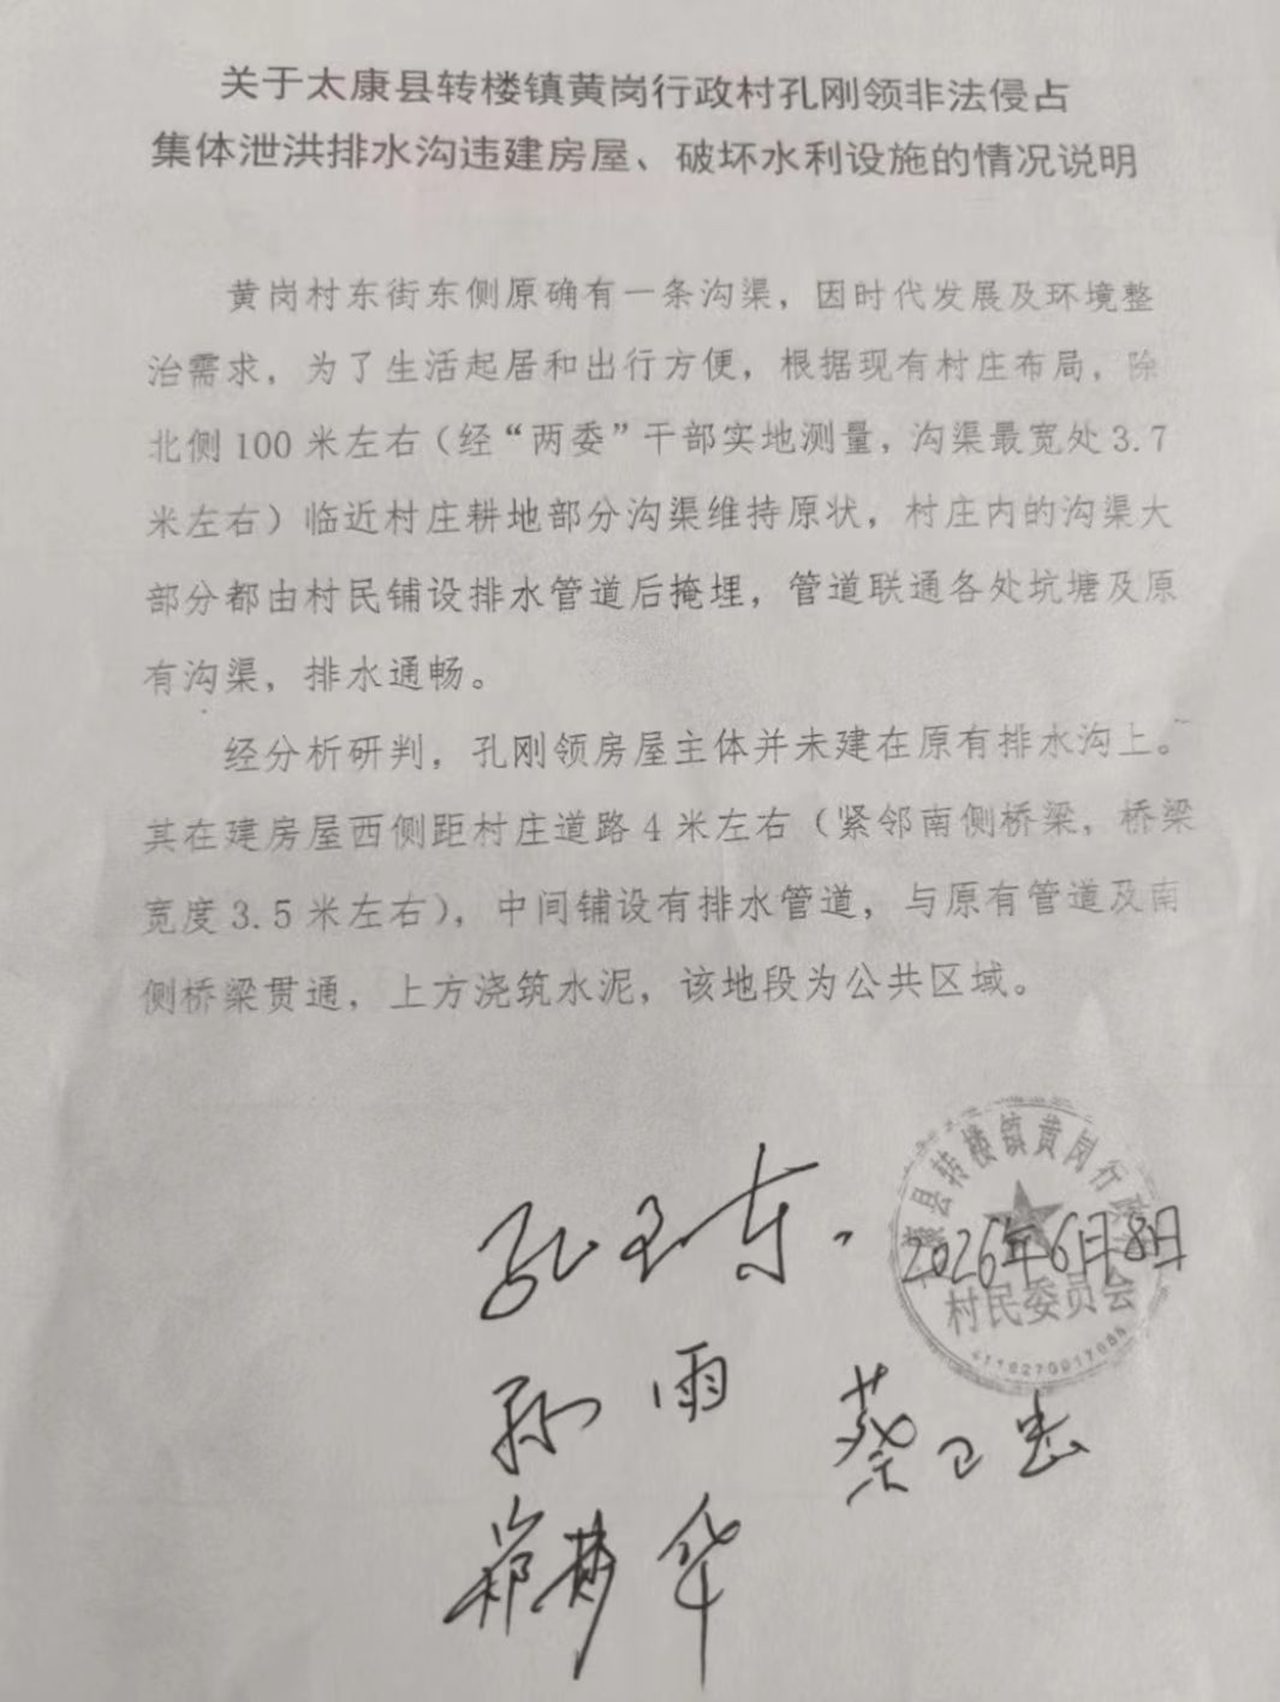 关于太康县转楼镇黄岗行政村孔刚领非法侵占
集体泄洪排水沟违建房屋、破坏水利设施的情况说明
黄岗村东街东侧原确有一条沟渠，因时代发展及环境整
治需求，为了生活起居和出行方便，根据现有村庄布局，除
北侧100米左右（经“两委”干部实地测量，沟渠最宽处3.7
米左右）临近村庄耕地部分沟渠维持原状，村庄内的沟渠大
部分都由村民铺设排水管道后掩埋，管道联通各处坑塘及原
有沟渠，排水通畅。
经分析研判，孔刚领房屋主体并未建在原有排水沟上。
其在建房屋西侧距村庄道路4米左右（紧邻南侧桥梁，桥梁
宽度3.5米左右），中间铺设有排水管道，与原有管道及南
侧桥梁贯通，上方浇筑水泥，该地段为公共区域。
县转楼镇黄岗行政
村民委员会
2026年6月8日
孔玉东
孙雨
蔡卫忠